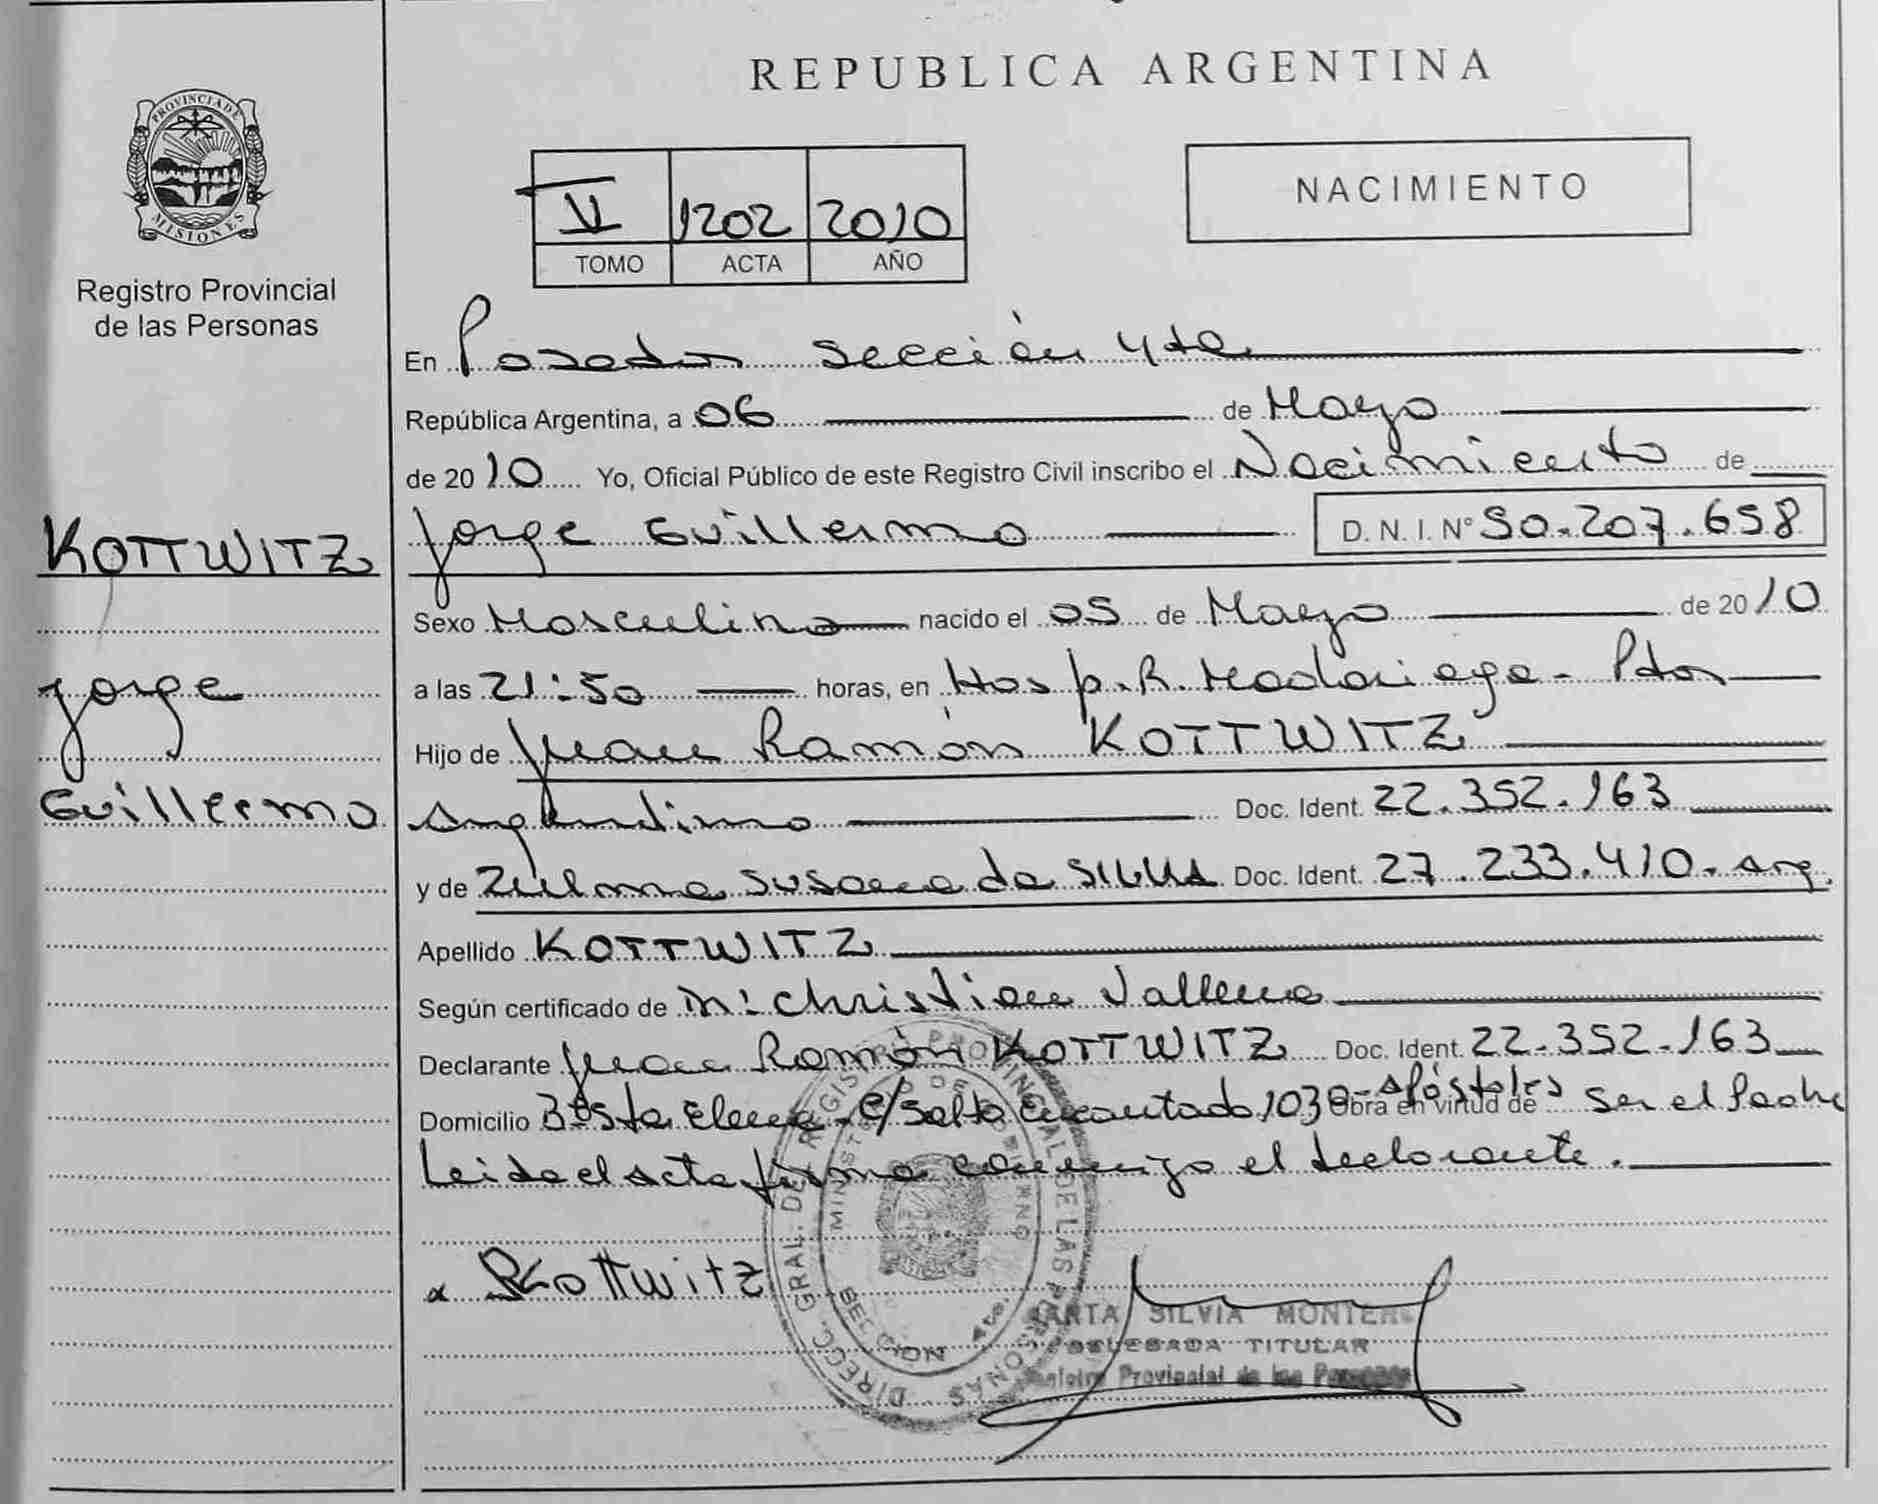 REPUBLICA ARGENTINA
PROVINCIA DE MISIONES
Registro Provincial
de las Personas
V 1202 2010
TOMO ACTA AÑO
NACIMIENTO
En Posadas sección 4ta
República Argentina, a 06 de Mayo
de 2010 Yo, Oficial Público de este Registro Civil inscribo el Nacimiento de
KOTTWITZ
Jorge
Guillermo
Jorge Guillermo D. N. I. N° 50.207.658
Sexo Masculino nacido el 05 de Mayo de 2010
a las 21:50 horas, en Hosp. R. Madariaga - Pdas
Hijo de Juan Ramón KOTTWITZ
Argentino Doc. Ident. 22.352.163
y de Zulma Susana da SILVA Doc. Ident. 27.233.410. Arg.
Apellido KOTTWITZ
Según certificado de Dr: Christian Vallena
Declarante Juan Ramón KOTTWITZ Doc. Ident. 22.352.163
Domicilio Bº Sta Elena - c/ Salto Encantado 1030 - Apóstoles Obra en virtud de ser el Padre
Leida el acta firma conmigo el declarante.
x Kottwitz
DIRECC. GRAL. DEL REGISTRO PROVINCIAL DE LAS PERSONAS
MINISTERIO DE GOBIERNO
SILVIA
DELEGADA TITULAR
Provincial de las